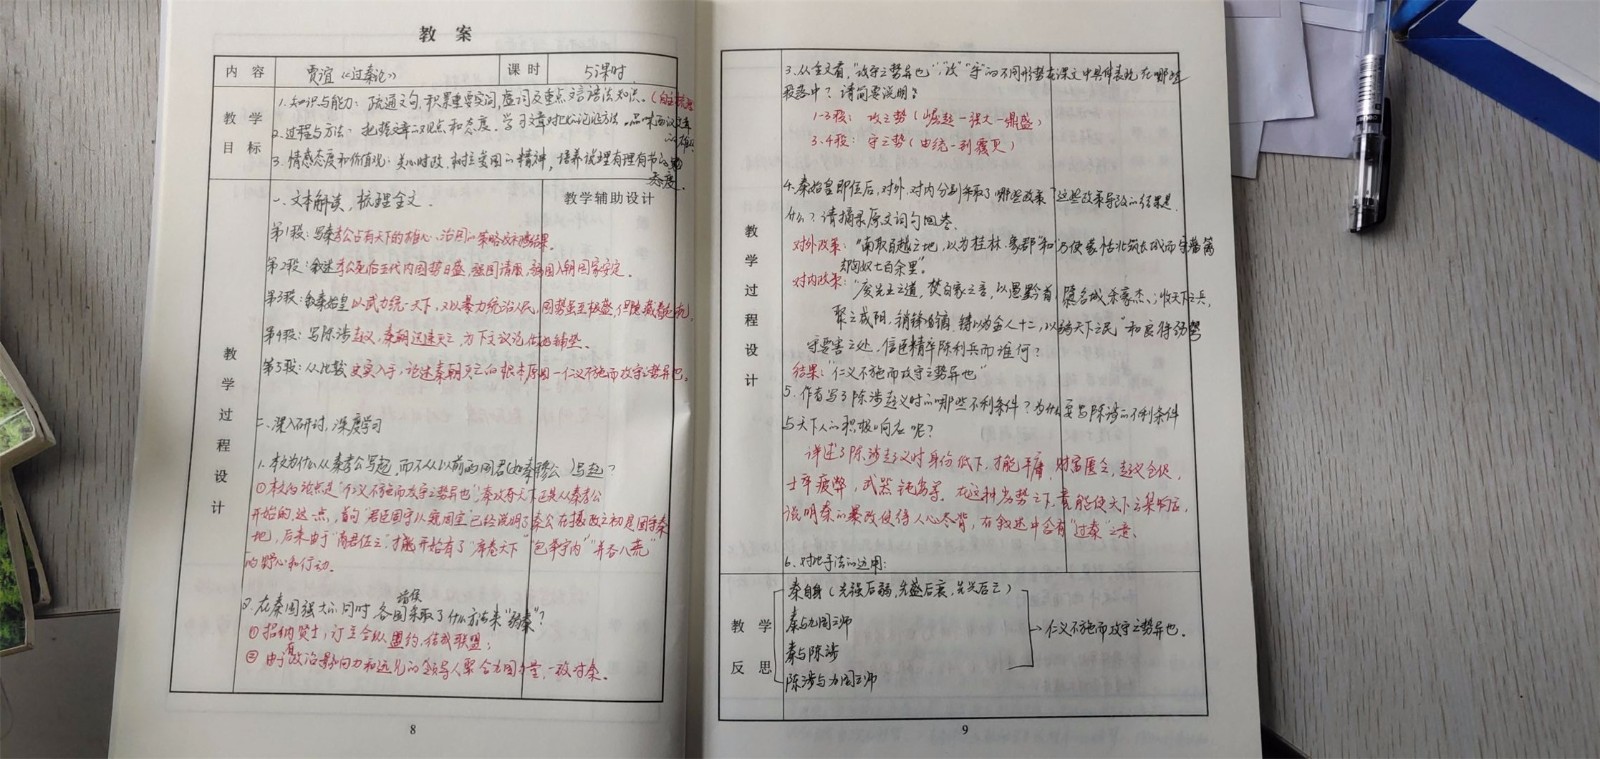 教 案
内 容 贾谊《过秦论》 课 时 5课时
教 学 目 标
1.知识与能力：疏通文句，积累重要实词，虚词及重点文言语法知识。
2.过程与方法：把握文章的观点和态度。学习文章对比论证方法。品味
3.情感态度和价值观：关心时政，树立爱国的精神，培养说理有理有节的
态度。
教 学 过 程 设 计
一.文本解读，梳理全文. 教学辅助设计
第1段：写秦孝公占有天下的雄心、治国的策略及效果。
第2段：叙述孝公死后五代内国势日盛，强国请服，弱国入朝国家安定。
第3段：叙秦始皇以武力统一天下，又以暴力统治人民，国势虽至极盛，但隐藏着危机。
第4段：写陈涉起义，秦朝迅速灭亡，为下文议论做出铺垫。
第5段：从比较史实入手，论述秦朝灭亡的根本原因—仁义不施而攻守之势异也。
二.深入研讨，深度学习
1.本文为什么从秦孝公写起，而不从以前的国君（如秦穆公）写起？
①本文的论点是“仁义不施而攻守之势异也”，秦攻夺天下正是从秦孝公
开始的，这一点，首句“君臣固守以窥周室”已经说明了秦公在摄政之初是固守秦
地，后来由于“商君佐之”，才能开始有了“席卷天下”“包举宇内”“并吞八荒”
的野心和行动.
2.在秦国强大的同时 诸侯各国采取了什么方法来“弱秦”？
①招纳贤士，订立合纵盟约，结成联盟；
②由有政治影响力和远见的领导人聚合九国之、一致对秦。
8
教 学 过 程 设 计
3.从全文看，“攻守之势异也”，“攻”“守”的不同形势在课文中具体表现在哪些
段落中？请简要说明？
1-3段：攻之势（崛起—强大—鼎盛）
3.4段：守之势（由统一到覆灭）
4.秦始皇即位后，对外、对内分别采取了哪些政策？这些政策导致的结果是
什么？请摘录原文词句回答.
对外政策：“南取百越之地，以为桂林、象郡”和“乃使蒙恬北筑长城而守藩篱
却匈奴七百余里”。
对内政策：“废先王之道，焚百家之言，以愚黔首；隳名城，杀豪杰、；收天下之兵，
聚之咸阳，销锋镝，铸以为金人十二，以弱天下之民”和良将劲弩
守要害之处，信臣精卒陈利兵而谁何？
结果：“仁义不施而攻守之势异也”
5.作者写了陈涉起义时的哪些不利条件？为什么要写陈涉的不利条件
与天下人的积极响应呢？
详述了陈涉起义时身份低下，才能平庸，财富匮乏，起义仓促，
士卒疲弊，武器钝劣等。在这种劣势之下，竟能使天下云集响应，
说明秦的暴政使得人心尽背，在叙述中含有“过秦”之意。
6.对比手法的运用：
教 学 反 思
秦自身（先强后弱，先盛后衰，先兴后亡）
秦与九国之师
秦与陈涉
陈涉与九国之师
→仁义不施而攻守之势异也。
9